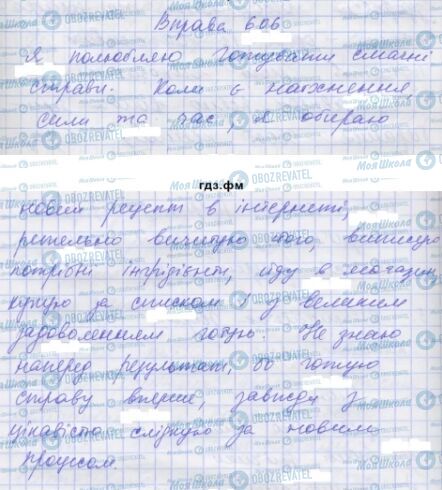 Вправа 606
Я полюбляю готувати смачні
страви. Коли є натхнення,
сили та час, я обираю
гдз.фм
новий рецепт в інтернеті,
ретельно вичитую його, виписую
потрібні інгрідієнти, йду в магазин,
купую за списком і з великим
задоволенням готую. Не знаю
наперед результат, бо готую
страву вперше, завжди з
цікавістю слідкую за новим
процесом.